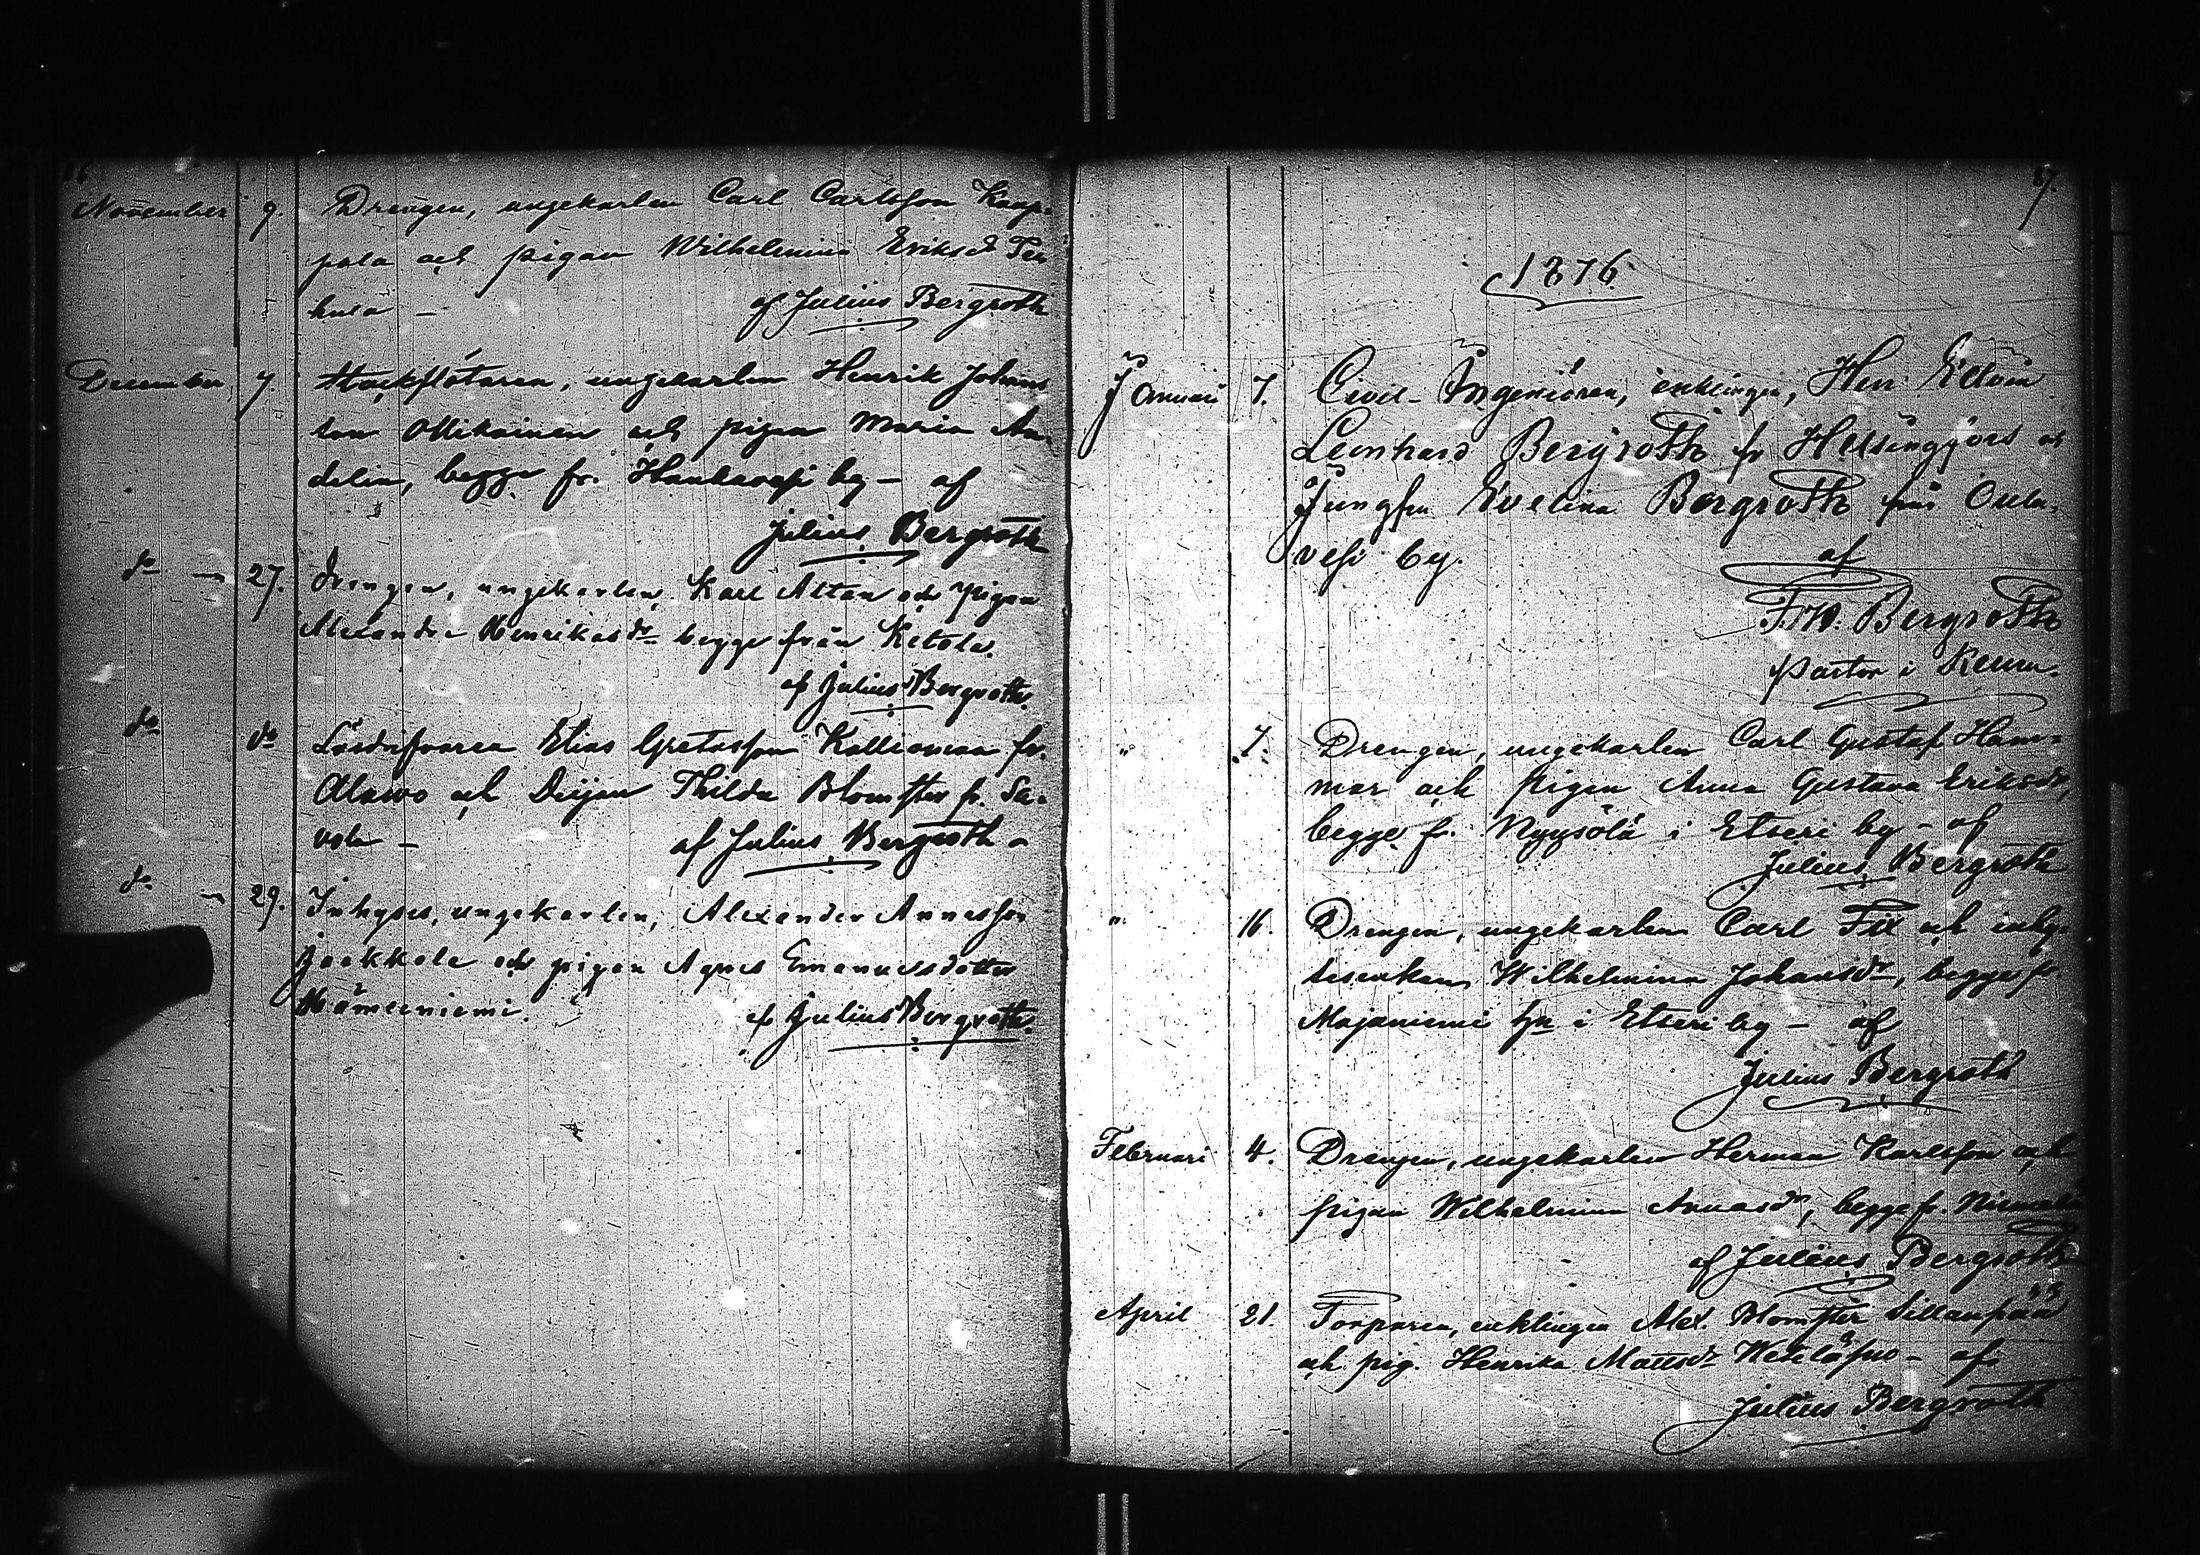 16
November 9. Drengen, ungekarlen Carl Carlsson Kaup-
pala och pigan Wilhelmina Eriksdr
kula – af Julius Bergroth
December 7. ungekarlen Henrik Johans
son och pigan Maria An-
delin, begge fr. Hankavesi by – af
Julius Bergroth
do – 27. drengen, ungekarlen Karl Altan och pigan
Alexandra Henriksdr begge från Ketola.
af Julius Bergroth.
do do Elias Gretasson Kallioman fr.
Alawo och Deijan Thilda Blomster fr.
af Julius Bergroth –
do – 29. Inhyses, ungekarlen, Alexander Annasson
Jaakkola och pigan Agnes Emanuelsdotter
Hämeeniemi. af Julius Bergroth.
17.
1876.
Januari 7. Civil-Ingeniören, enklingen, Herr Edvin
Leonhard Bergroth fr Helsingfors och
Jungfru Evelina Bergroth från Oula-
vesi by. af
F.W. Bergroth
Pastor i Keuru.
" 7. Drengen, ungekarlen Carl Gustaf Ham-
mar och pigan Anna Gustava Eriksdr,
begge fr. Nyysölä i Etseri by – af
Julius Bergroth
" 16. Drengen, ungekarlen Carl Fält och inhy-
seskan Wilhelmina Johansdr, begge fr
Majaniemi i Etseri by – af
Julius Bergroth
Februari 4. Drengen, ungekarlen Herman Karlsson och
pigan Wilhelmina Annasdr, begge fr.
af Julius Bergroth
April 21. Torparen, enklingen Alex. Blomster Sillanpää
och pig. Henrika Mattsdr – af
Julius Bergroth